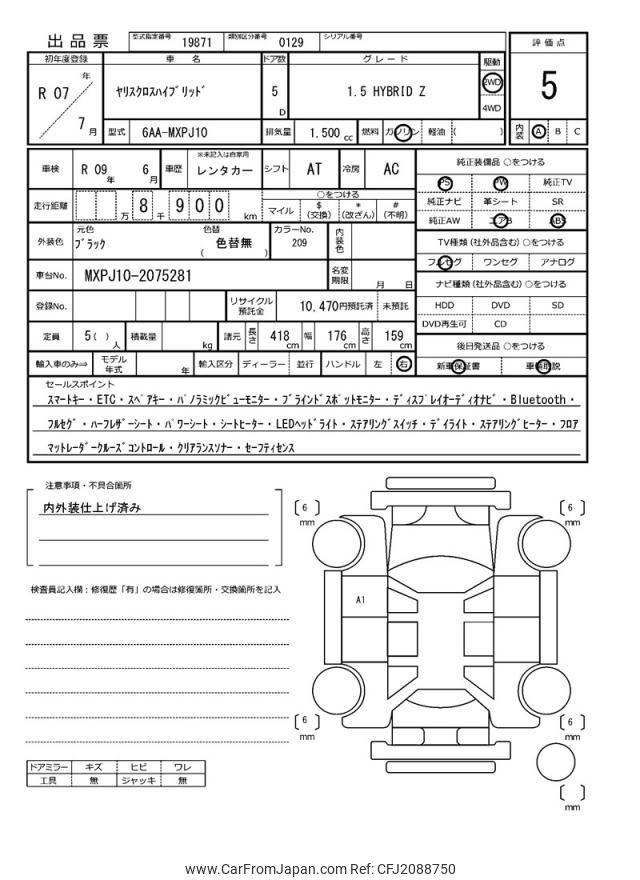 出品票 型式指定番号 19871 類別区分番号 0129 シリアル番号
初年度登録 車名 ドア数 グレード 駆動 評価点
R 07 年 7 月 ヤリスクロスハイブリッド 5 D 1.5 HYBRID Z 2WD 4WD 5
型式 6AA-MXPJ10 排気量 1.500 cc 燃料 ガソリン 軽油 ( ) 内装 A B C
車検 R 09 年 6 月 車歴 ※未記入は自家用 レンタカー シフト AT 冷房 AC
純正装備品 ○をつける
PS PW 純正TV
純正ナビ 革シート SR
純正AW エアB ABS
走行距離 万 8 千 9 0 0 km
○をつける
マイル $ (交換) * (改ざん) # (不明)
外装色 元色 ブラック 色替 色替無 ( ) カラーNo. 209 内装色
TV種類 (社外品含む) ○をつける
フルセグ ワンセグ アナログ
車台No. MXPJ10-2075281 名変期限 月 日
ナビ種類 (社外品含む) ○をつける
HDD DVD SD
DVD再生可 CD
登録No. リサイクル預託金 10,470円預託済 未預託
定員 5 ( ) 人 積載量 kg 諸元 長さ 418 cm 幅 176 cm 高さ 159 cm
後日発送品 ○をつける
新車保証書 車輌取説
輸入車のみ⇒ モデル年式 年 輸入区分 ディーラー 並行 ハンドル 左 右
セールスポイント
スマートキー・ETC・スペアキー・パノラミックビューモニター・ブラインドスポットモニター・ディスプレイオーディオナビ・Bluetooth・
フルセグ・ハーフレザーシート・パワーシート・シートヒーター・LEDヘッドライト・ステアリングスイッチ・デイライト・ステアリングヒーター・フロア
マットレーダークルーズコントロール・クリアランスソナー・セーフティセンス
注意事項・不具合箇所
内外装仕上げ済み
検査員記入欄:修復歴「有」の場合は修復箇所・交換箇所を記入
6 mm
6 mm
A1
6 mm
6 mm
mm
ドアミラー キズ ヒビ ワレ
工具 無 ジャッキ 無
www.CarFromJapan.com Ref: CFJ2088750